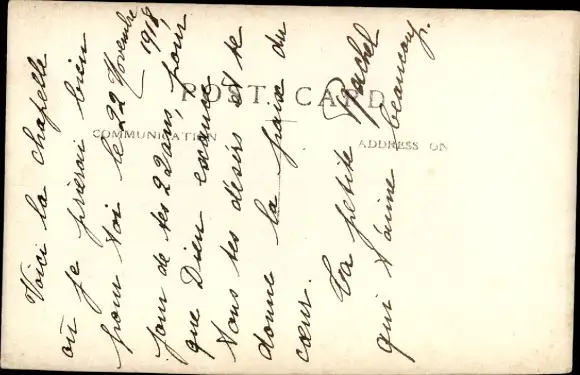 POST CARD
COMMUNICATION
ADDRESS ON
Voici la chapelle
où je prierai bien
pour toi le 22 Novembre
1918,
jour de tes 22 ans, pour
que Dieu exauce
tous tes désirs et te
donne la paix du
cœur.
Ta petite Rachel
qui t'aime beaucoup.